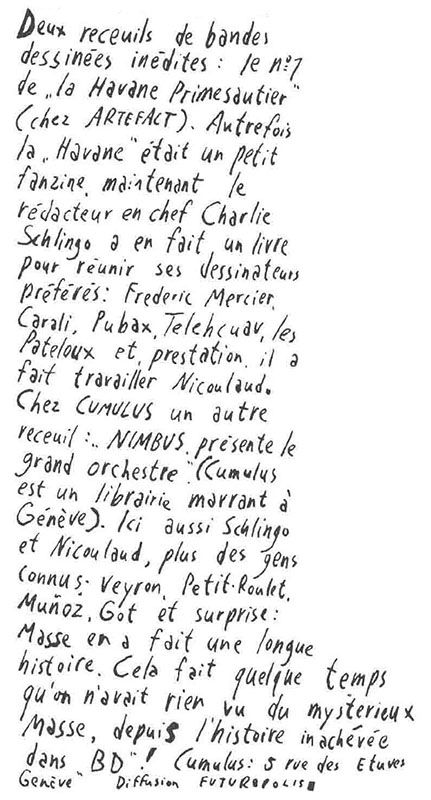 Deux receuils de bandes
dessinées inédites : le nº1
de „la Havane Primesautier"
(chez ARTEFALT). Autrefois
la „Havane" était un petit
fanzine, maintenant le
rédacteur en chef Charlie
Schlingo a en fait un livre
pour réunir ses dessinateurs
préférés: Frederic Mercier,
Carali, Pubax, Telehcuav, les
Pateloux et, prestation, il a
fait travailler Nicoulaud.
Chez CUMULUS un autre
receuil :„ NIMBUS présente le
grand orchestre". (Cumulus
est un librairie marrant à
Génève). Ici aussi Schlingo
et Nicoulaud, plus des gens
connus: Veyron, Petit-Roulet,
Muñoz, Got et surprise:
Masse en a fait une longue
histoire. Cela fait quelque temps
qu'on n'avait rien vu du mystérieux
Masse, depuis l'histoire inachévée
dans „BD"! Cumulus: 5 rue des Etuves
Genève" Diffusion FUTUROPOLIS